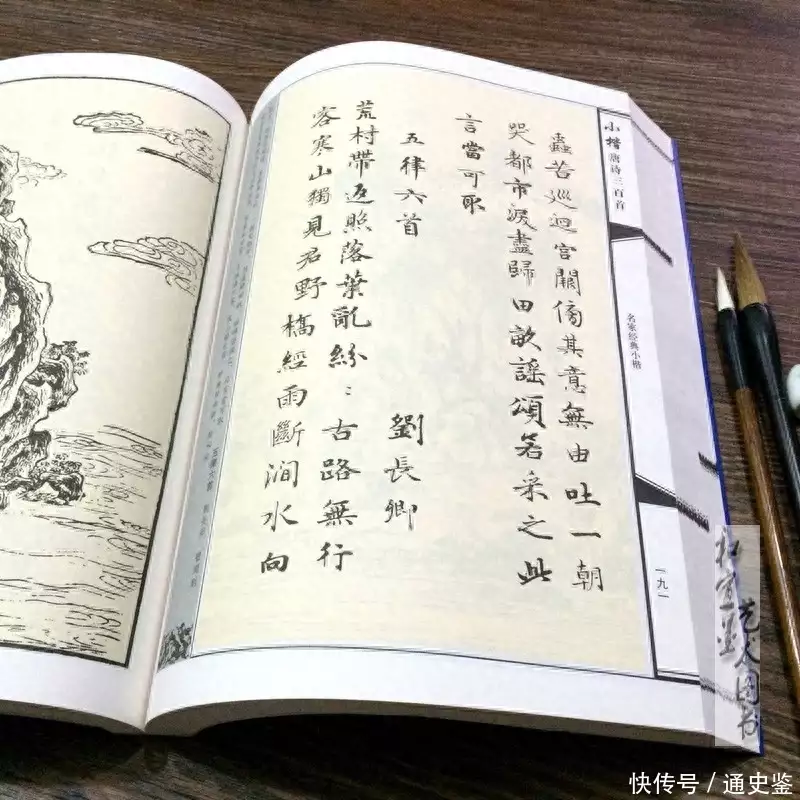 小楷唐诗三百首
名家经典小楷
一九一
蟲苦巡迴宫闕傍其意無由吐一朝
哭都市淚盡歸田畝謡頌若采之此
言當可取
五律六首
劉長卿
荒村帶返照落葉亂紛：古路無行
客寒山獨見君野橋經雨斷澗水向
五律六首
艺天图书
快传号／通史鉴